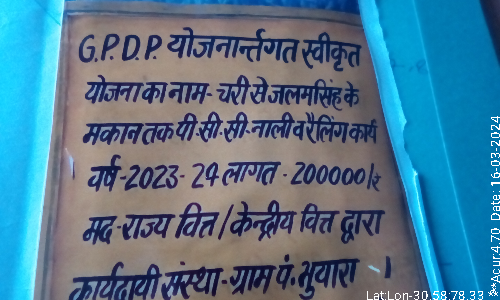 G.P.D.P. योजनार्न्तगत स्वीकृत
योजना का नाम- चरी से जलमसिंह के
मकान तक पी.सी.सी.नाली व रैलिंग कार्य
वर्ष-2023-24 लागत - 200000/₹
मद-राज्य वित्त/केन्द्रीय वित्त द्वारा
कार्यदायी संस्था-ग्राम पं. भुयारा
LatLon-30.58,78.33
Acur:4.70 Date: 16-03-2024